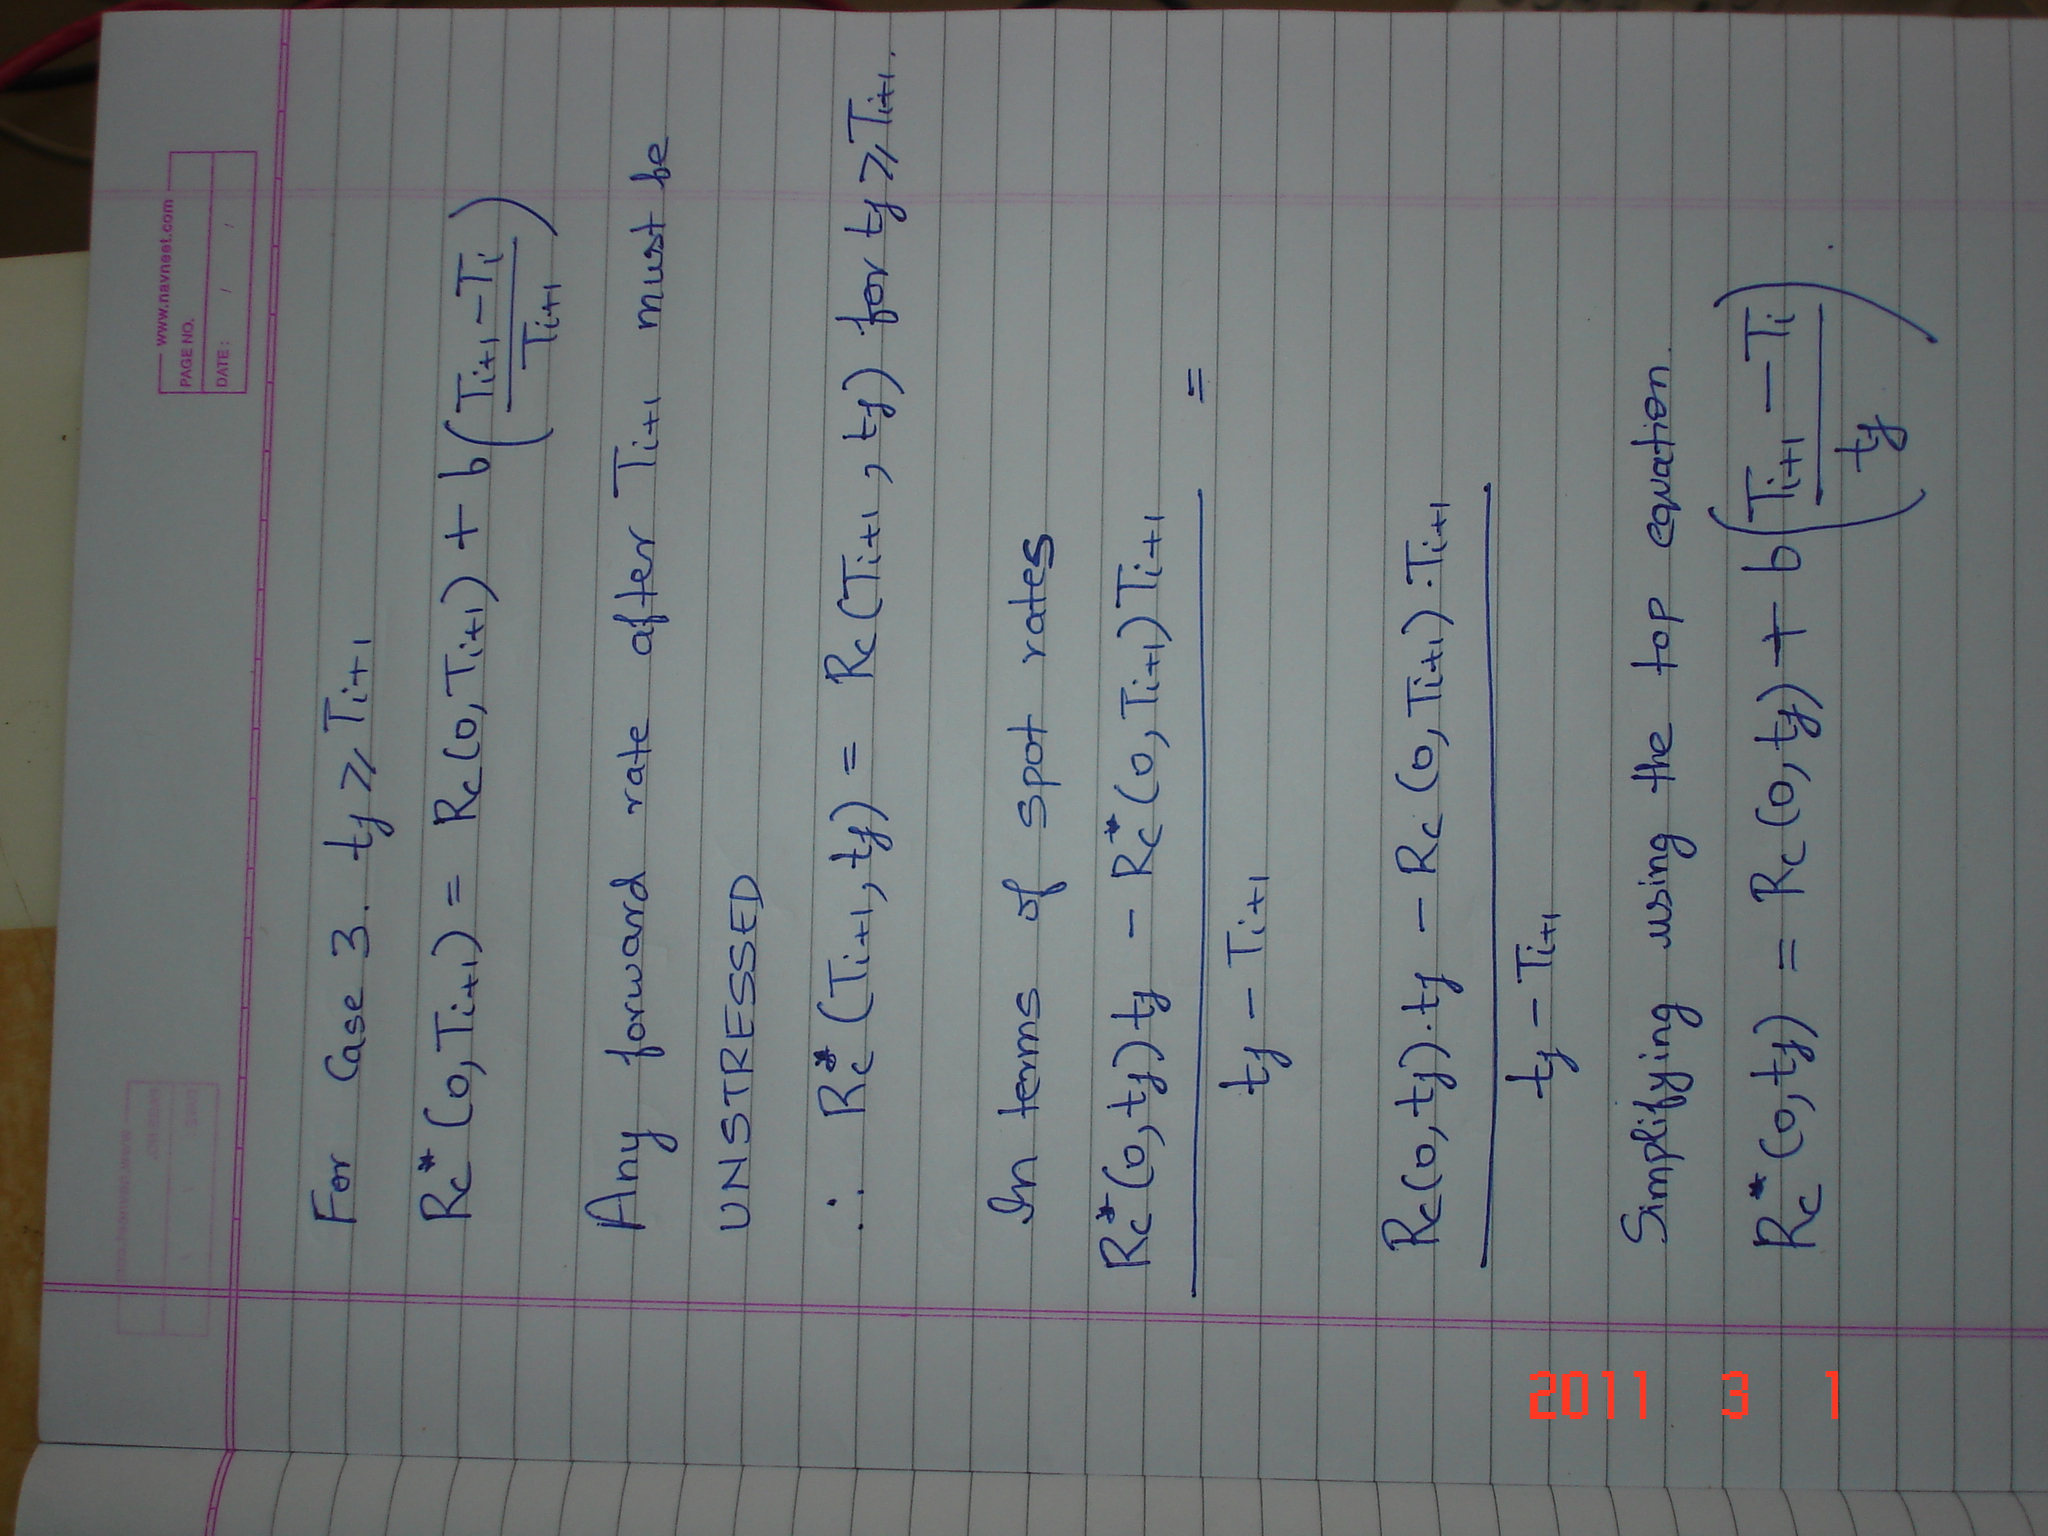 www.navneet.com
PAGE NO.
DATE: / /
For Case 3. tj ⩾ Ti+1
Rc*(0, Ti+1) = Rc(0, Ti+1) + b((Ti+1 − Ti)/Ti+1)
Any forward rate after Ti+1 must be
UNSTRESSED
∴ Rc*(Ti+1, tj) = Rc(Ti+1, tj) for tj ⩾ Ti+1.
In terms of spot rates
Rc*(0, tj) tj − Rc*(0, Ti+1) Ti+1 =
tj − Ti+1
Rc(0, tj)·tj − Rc(0, Ti+1)·Ti+1
tj − Ti+1
Simplifying using the top equation.
Rc*(0, tj) = Rc(0, tj) + b((Ti+1 − Ti)/tj).
2011 3 1